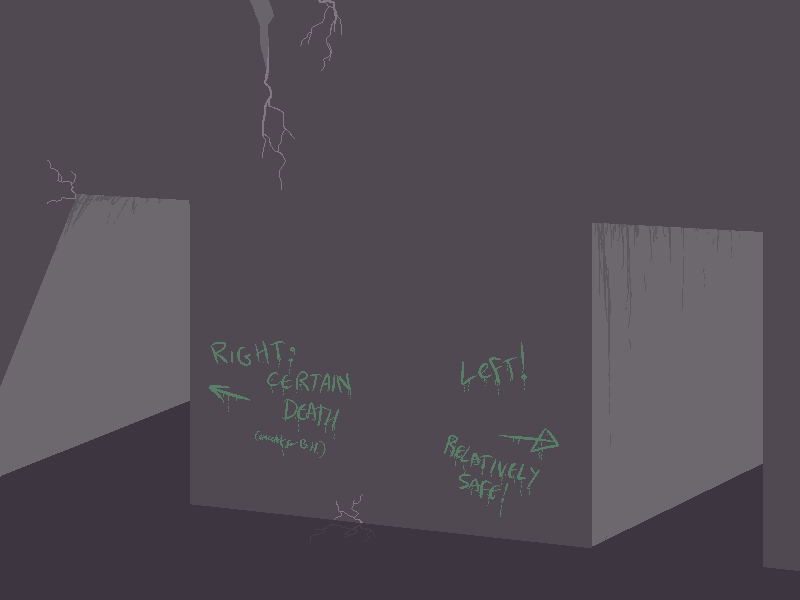 RIGHT:
CERTAIN
DEATH
LEFT!
RELATIVELY
SAFE!